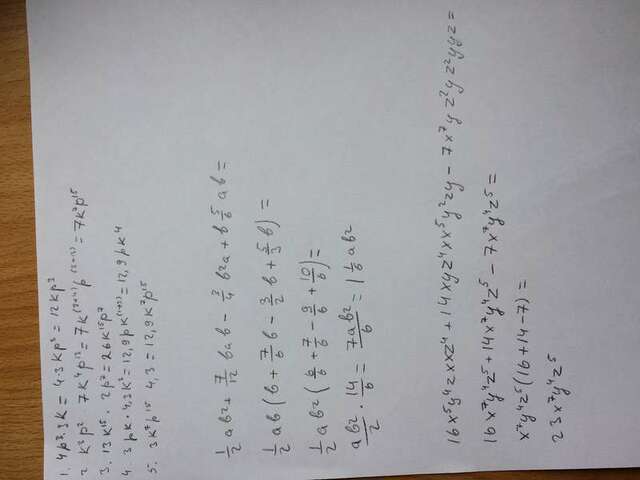 1. 4p³·3k = 4·3kp³ = 12kp³
2. k³p² 7k⁴p¹³ = 7k⁽³⁺⁴⁾p⁽²⁺¹³⁾ = 7k⁷p¹⁵
3. 13k¹⁵ · 2p⁷ = 26k¹⁵p⁷
4. 3pk · 4,3k³ = 12,9pk⁽¹⁺³⁾ = 12,9pk⁴
5. 3k⁷p¹⁵ 4,3 = 12,9k⁷p¹⁵
1/2 ab² + 7/12 bab - 3/4 b²a + b 5/6 ab =
1/2 ab (b + 7/6 b - 3/2 b + 5/3 b) =
1/2 ab² (6/6 + 7/6 - 9/6 + 10/6) =
ab²/2 · 14/6 = 7ab²/6 = 1 1/6 ab²
16x⁵y⁴zxxz⁴ + 14xyz⁴xx⁵y²zy - 7x⁷yz²yz²yyz =
16x⁷y⁴z⁵ + 14x⁷y⁴z⁵ - 7x⁷y⁴z⁵ =
x⁷y⁴z⁵(16+14-7) =
23x⁷y⁴z⁵